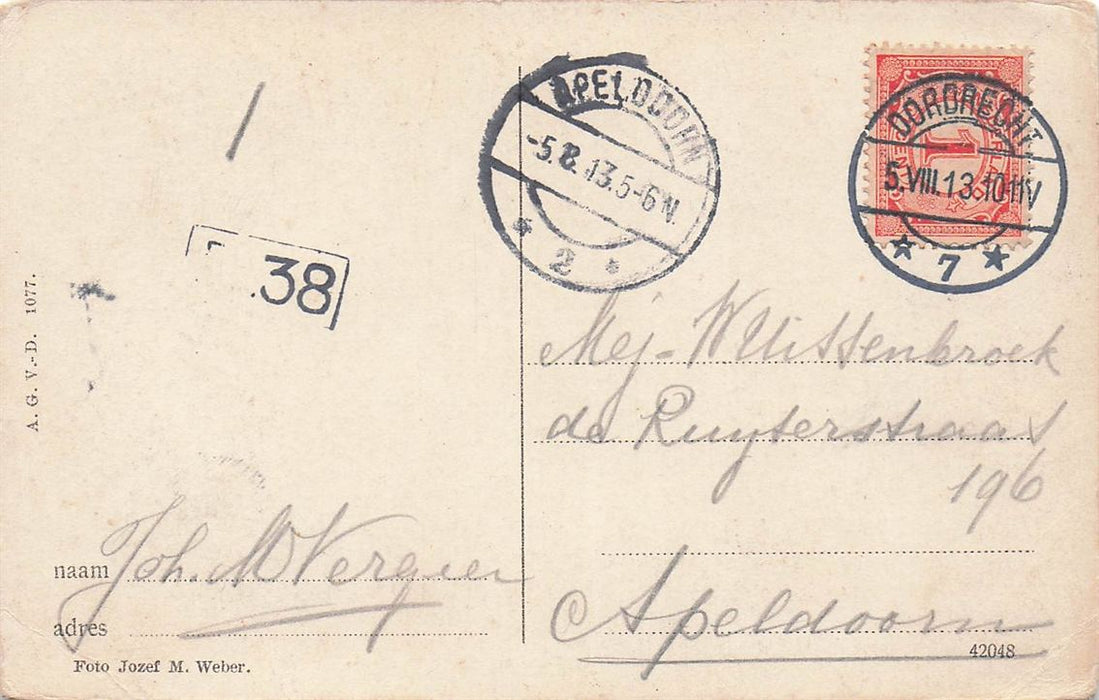 APELDOORN
-5.8.13.5-6N.
* 2 *
DORDRECHT
5.VIII.13.10-11V
* 7 *
1
38
A. G. V.-D. 1077.
Mej- W Uittenbroek
de Ruyterstraat
196
Apeldoorn
naam Joh. M Vergeer
adres
Foto Jozef M. Weber.
42048